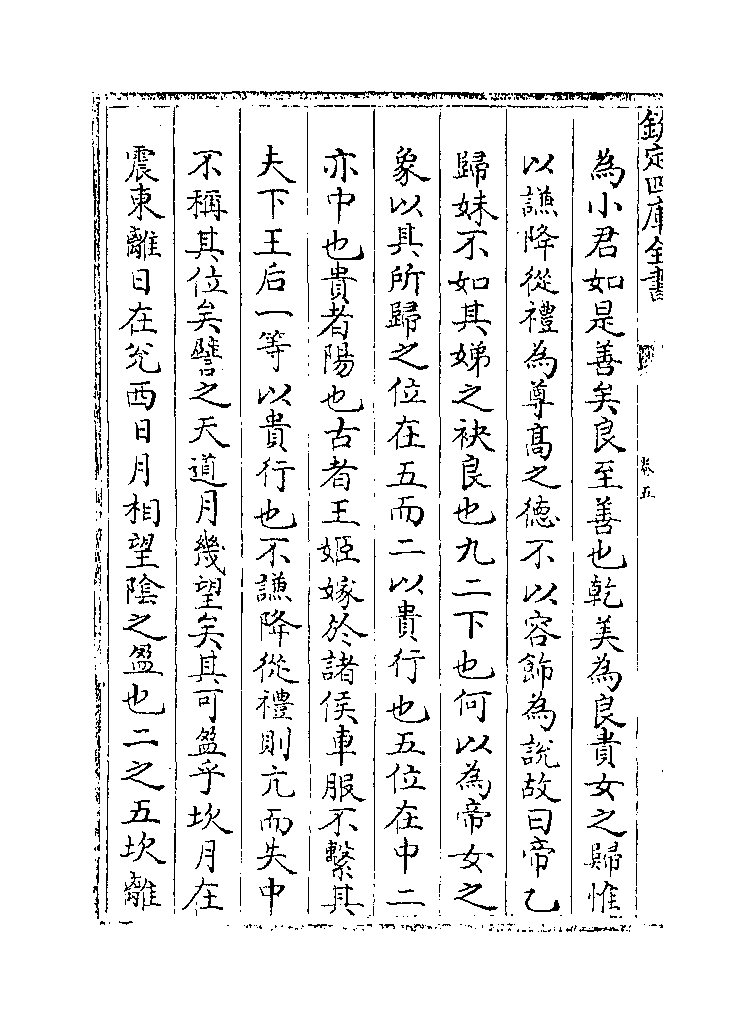 欽定四庫全書
卷五
為小君如是善矣良至善也乾美為良貴女之歸惟
以謙降從禮為尊髙之德不以容飾為說故曰帝乙
歸妹不如其娣之袂良也九二下也何以為帝女之
象以其所歸之位在五而二以貴行也五位在中二
亦中也貴者陽也古者王姬嫁於諸侯車服不繫其
夫下王后一等以貴行也不謙降從禮則亢而失中
不稱其位矣譬之天道月幾望矣其可盈乎坎月在
震東離日在兊西日月相望陰之盈也二之五坎離